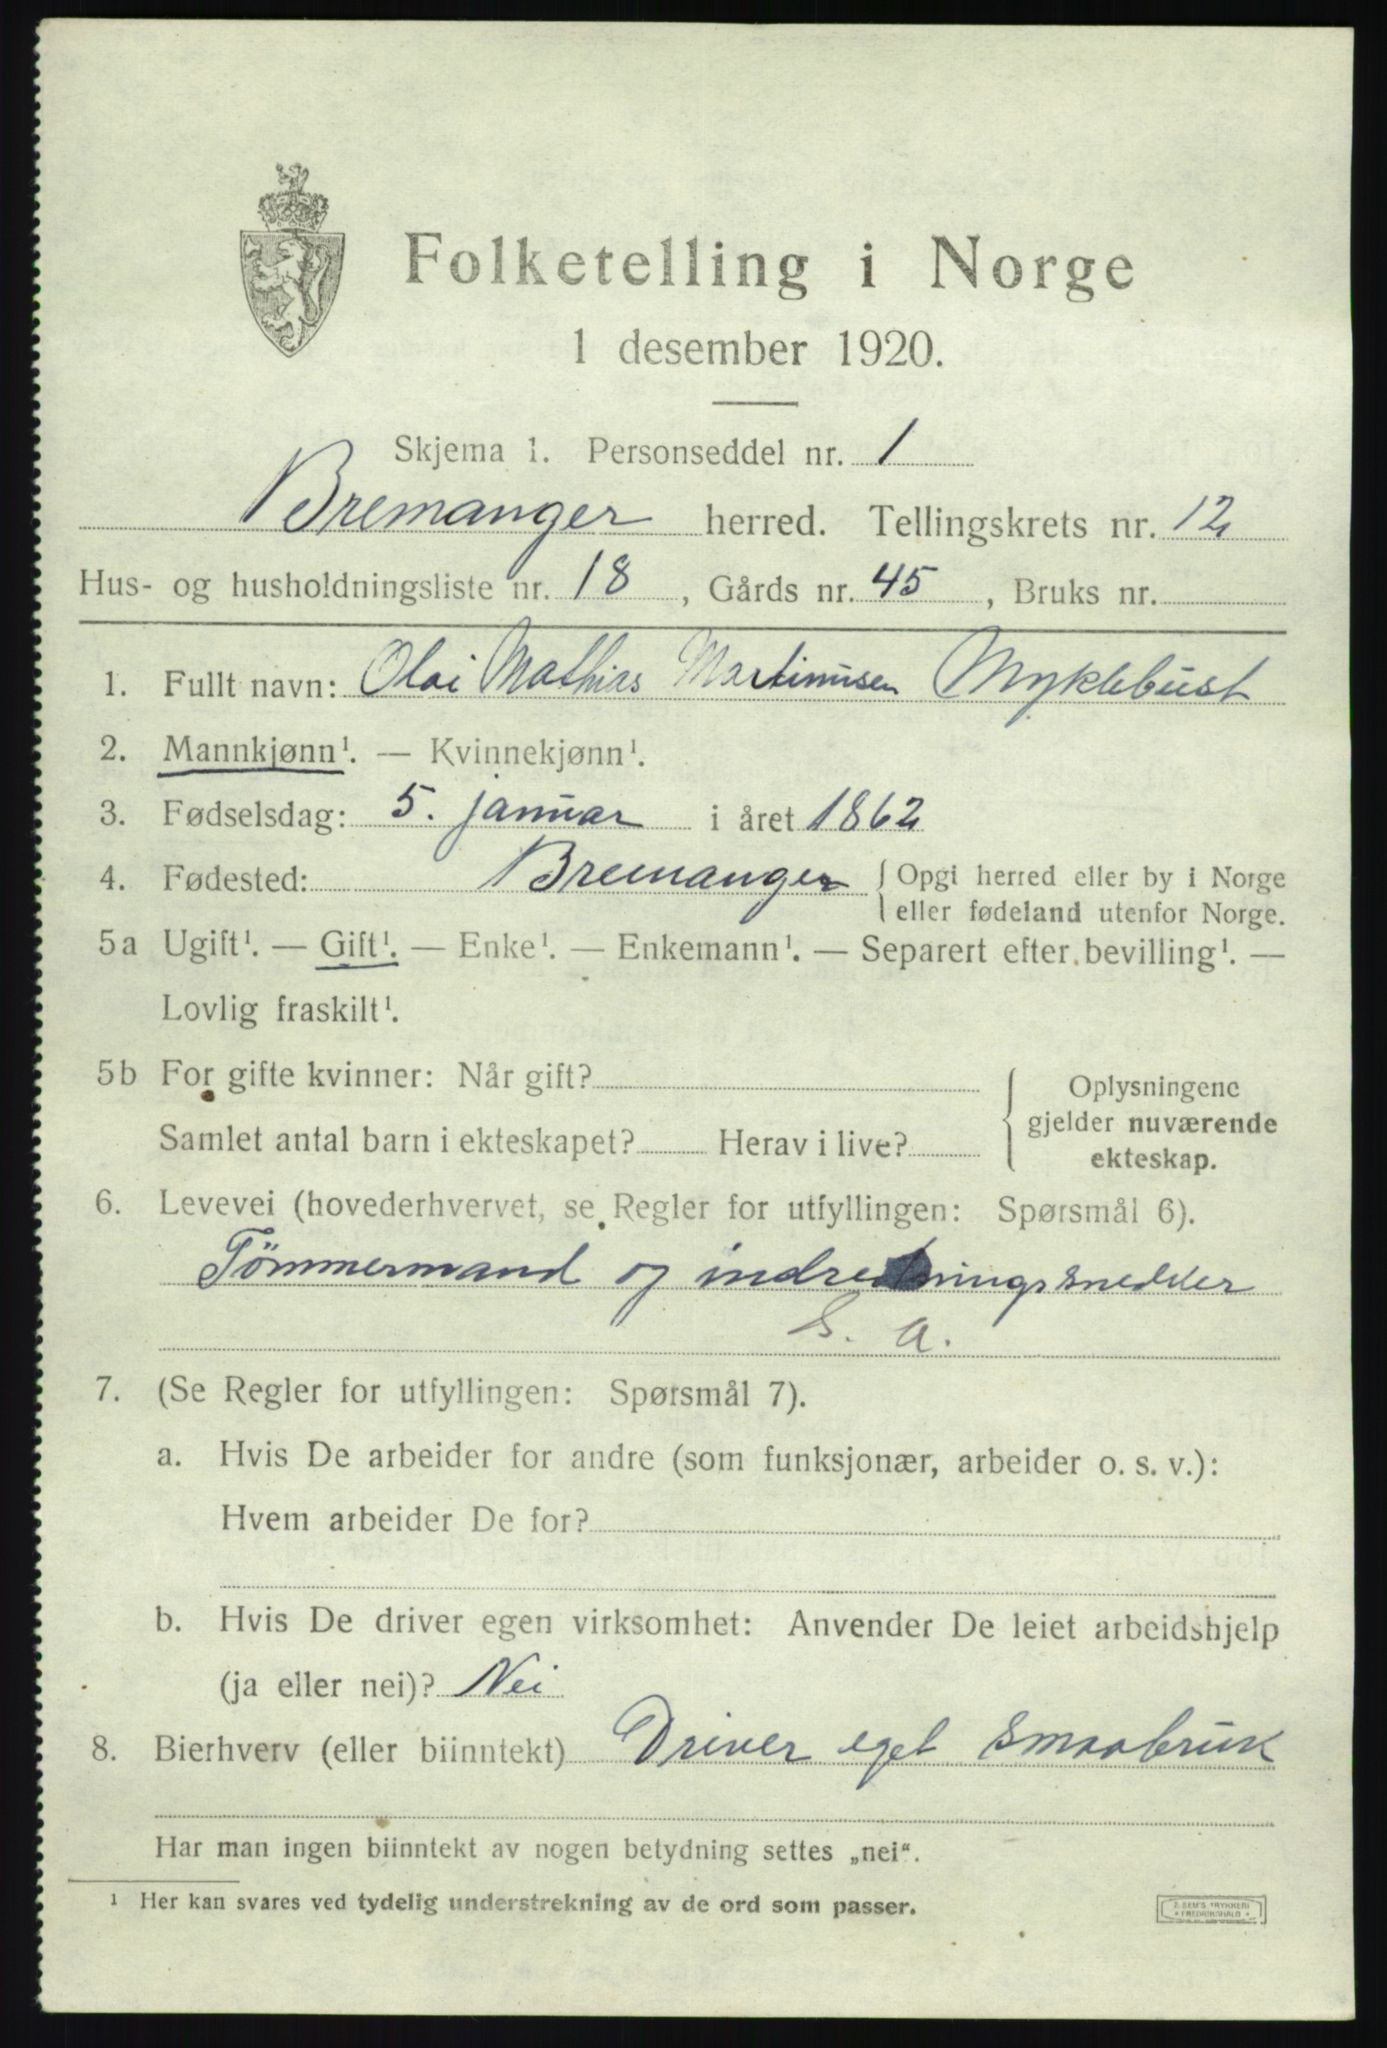 Folketelling i Norge
1 desember 1920.
Skjema 1. Personseddel nr. 1
Bremanger herred. Tellingskrets nr. 12
Hus- og husholdningsliste nr. 18, Gårds nr. 45, Bruks nr.
1. Fullt navn: Olai Mathias Martinusen Myklebust
2. Mannkjønn¹. — Kvinnekjønn¹.
3. Fødselsdag: 5. januar i året 1862
4. Fødested: Bremanger { Opgi herred eller by i Norge
eller fødeland utenfor Norge.
5a Ugift¹. — Gift¹. — Enke¹. — Enkemann¹. — Separert efter bevilling¹. —
Lovlig fraskilt¹.
5b For gifte kvinner: Når gift?
Samlet antal barn i ekteskapet? Herav i live?
Oplysningene
gjelder nuværende
ekteskap.
6. Levevei (hovederhvervet, se Regler for utfyllingen: Spørsmål 6).
Tömmermand og indredningssnedker
S. A.
7. (Se Regler for utfyllingen: Spørsmål 7).
a. Hvis De arbeider for andre (som funksjonær, arbeider o. s. v.):
Hvem arbeider De for?
b. Hvis De driver egen virksomhet: Anvender De leiet arbeidshjelp
(ja eller nei)? Nei
8. Bierhverv (eller biinntekt) Driver eget smaabruk
Har man ingen biinntekt av nogen betydning settes „nei“.
¹ Her kan svares ved tydelig understrekning av de ord som passer.
E. SEM'S TRYKKERI
FREDRIKSHALD